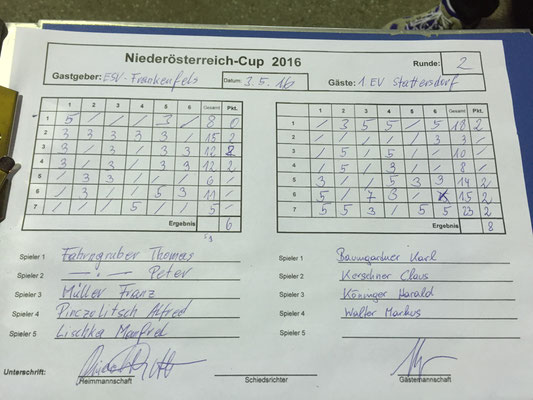 Niederösterreich-Cup 2016 Runde: 2
Gastgeber: ESV-Frankenfels Datum: 3.5.16 Gäste: 1. EV Stattersdorf
1 2 3 4 5 6 Gesamt Pkt. 1 2 3 4 5 6 Gesamt Pkt.
1 5 / / / 3 / 8 0 1 / 3 5 5 / 5 18 2
2 3 3 3 3 3 / 15 2 2 / / / / / 3 3 /
3 3 / 3 / 3 3 12 2 3 / 5 / 5 / / 10 /
4 3 / 3 / 3 3 12 2 4 / 5 / 3 / / 8 /
5 / 3 3 / / / 6 / 5 3 / / 5 3 3 14 2
6 / 3 / / 5 3 11 / 6 5 / 7 3 / 15 2
7 / / / 5 / / 5 / 7 5 5 3 / 5 5 23 2
Ergebnis 6 Ergebnis 8
Spieler 1 Fahrngruber Thomas Spieler 1 Baumgartner Karl
Spieler 2 — " — Peter Spieler 2 Kerschner Claus
Spieler 3 Müller Franz Spieler 3 Köninger Harald
Spieler 4 Pinczolitsch Alfred Spieler 4 Walter Markus
Spieler 5 Lischka Manfred Spieler 5
Unterschrift: Heimmannschaft Schiedsrichter Gästemannschaft